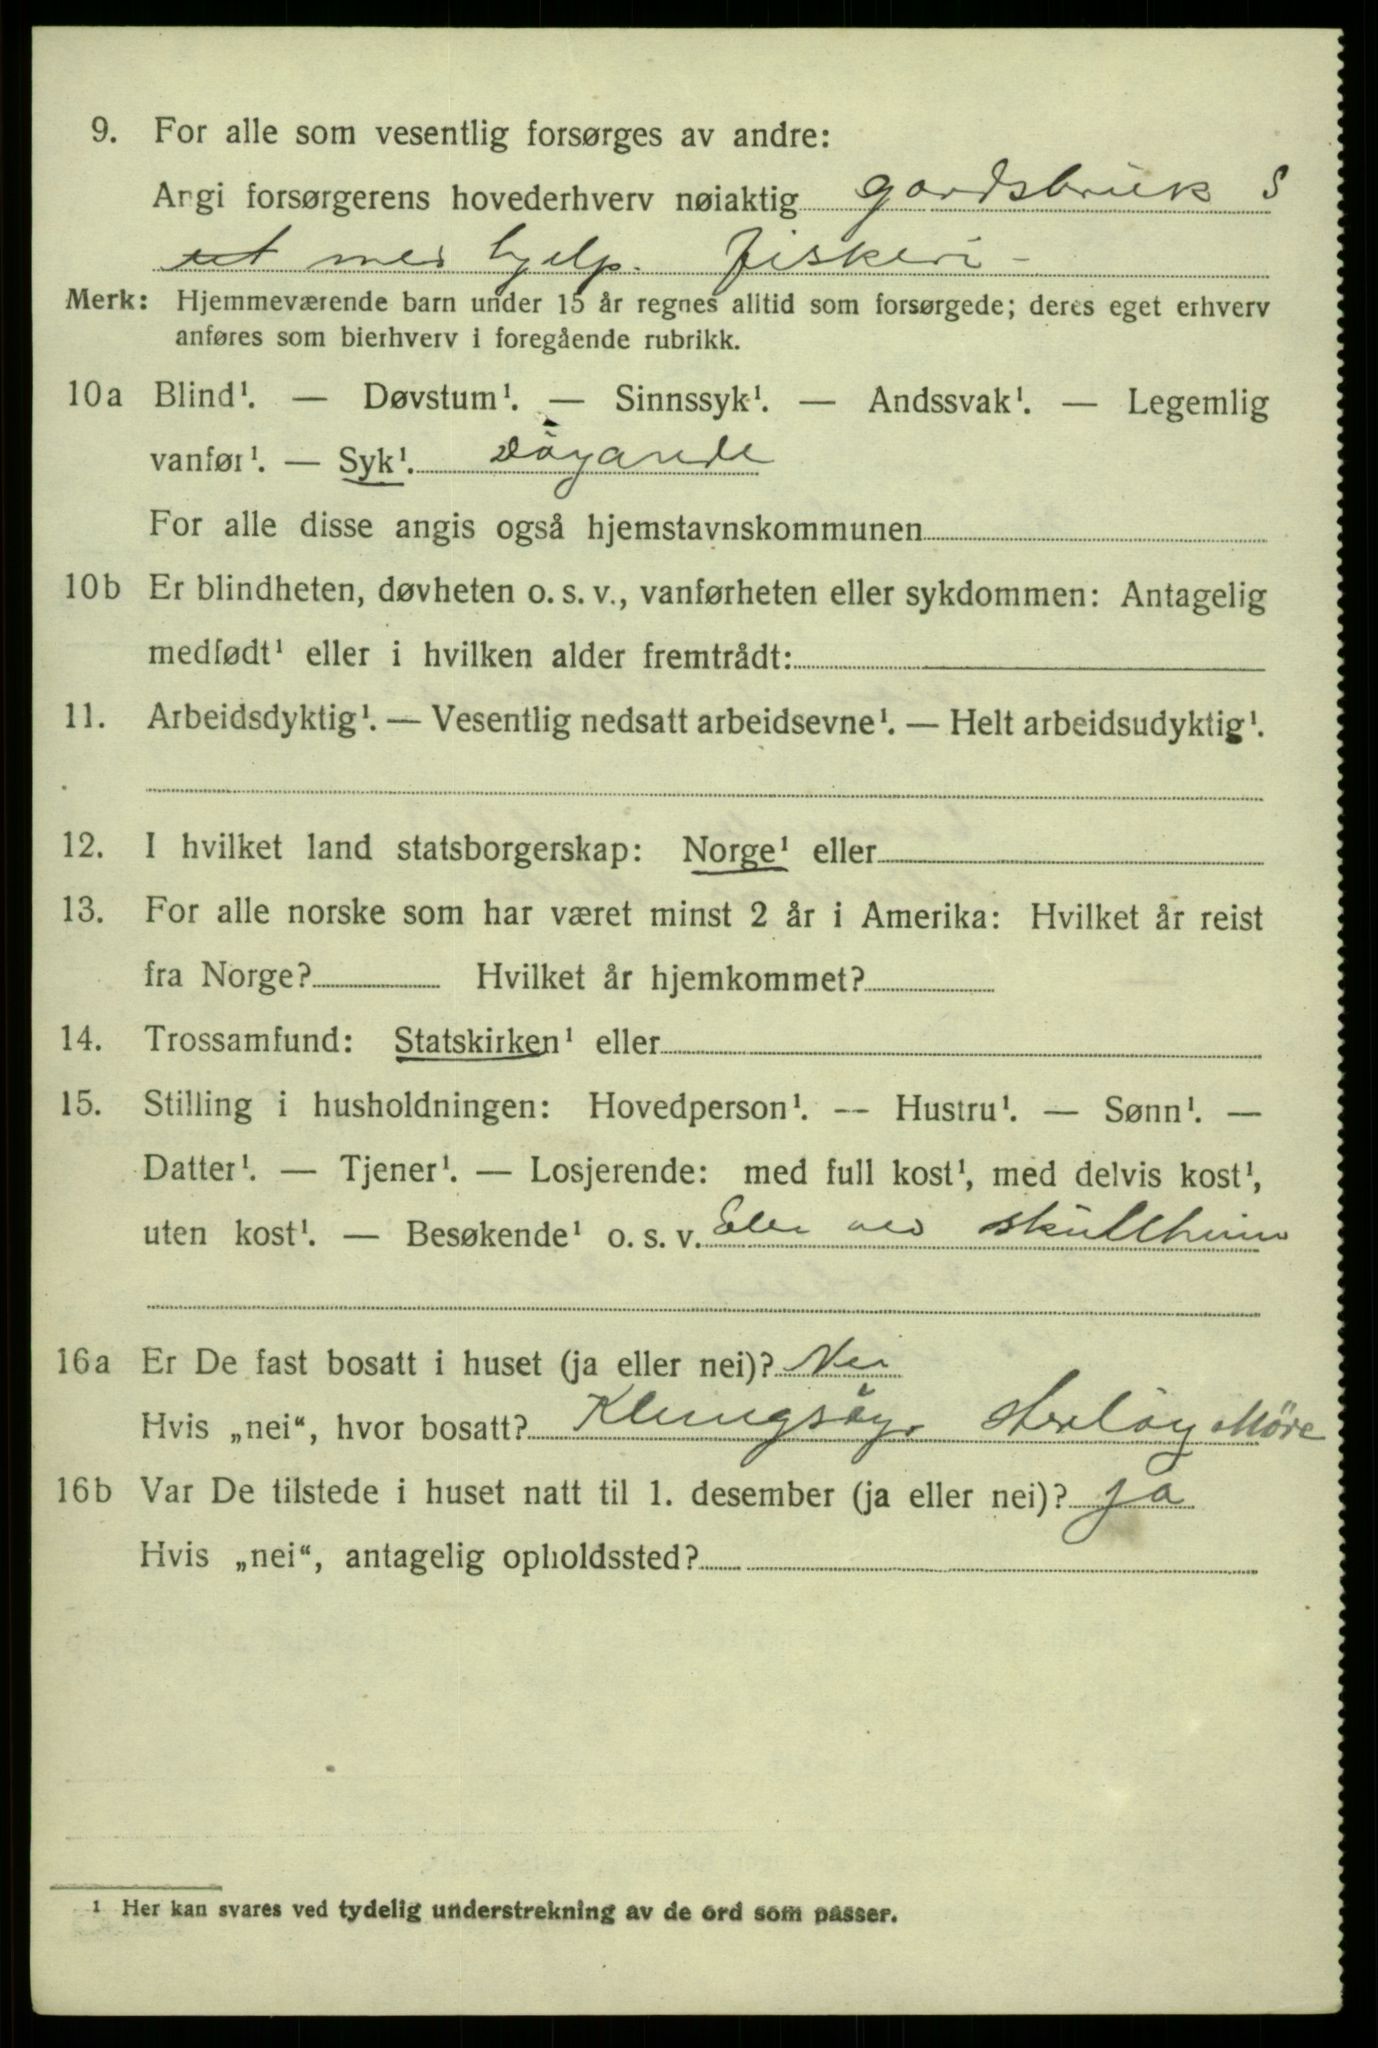 9. For alle som vesentlig forsørges av andre:
Angi forsørgerens hovederhverv nøiaktig gardsbruk S
med hjelp. fiskeri -
Merk: Hjemmeværende barn under 15 år regnes alltid som forsørgede; deres eget erhverv
anføres som bierhverv i foregående rubrikk.
10a Blind¹. — Døvstum¹. — Sinnssyk¹. — Andssvak¹. — Legemlig
vanfør¹. — Syk¹. döyande
For alle disse angis også hjemstavnskommunen
10b Er blindheten, døvheten o. s. v., vanførheten eller sykdommen: Antagelig
medfødt¹ eller i hvilken alder fremtrådt:
11. Arbeidsdyktig¹. — Vesentlig nedsatt arbeidsevne¹. — Helt arbeidsudyktig¹.
12. I hvilket land statsborgerskap: Norge¹ eller
13. For alle norske som har været minst 2 år i Amerika: Hvilket år reist
fra Norge? Hvilket år hjemkommet?
14. Trossamfund: Statskirken¹ eller
15. Stilling i husholdningen: Hovedperson¹. — Hustru¹. — Sønn¹. —
Datter¹. — Tjener¹. — Losjerende: med full kost¹, med delvis kost¹,
uten kost¹. — Besøkende¹ o. s. v. Elev ved skulheim
16a Er De fast bosatt i huset (ja eller nei)? Nei
Hvis „nei“, hvor bosatt? Klungsöyr Herlöy Möre
16b Var De tilstede i huset natt til 1. desember (ja eller nei)? ja
Hvis „nei“, antagelig opholdssted?
¹ Her kan svares ved tydelig understrekning av de ord som passer.